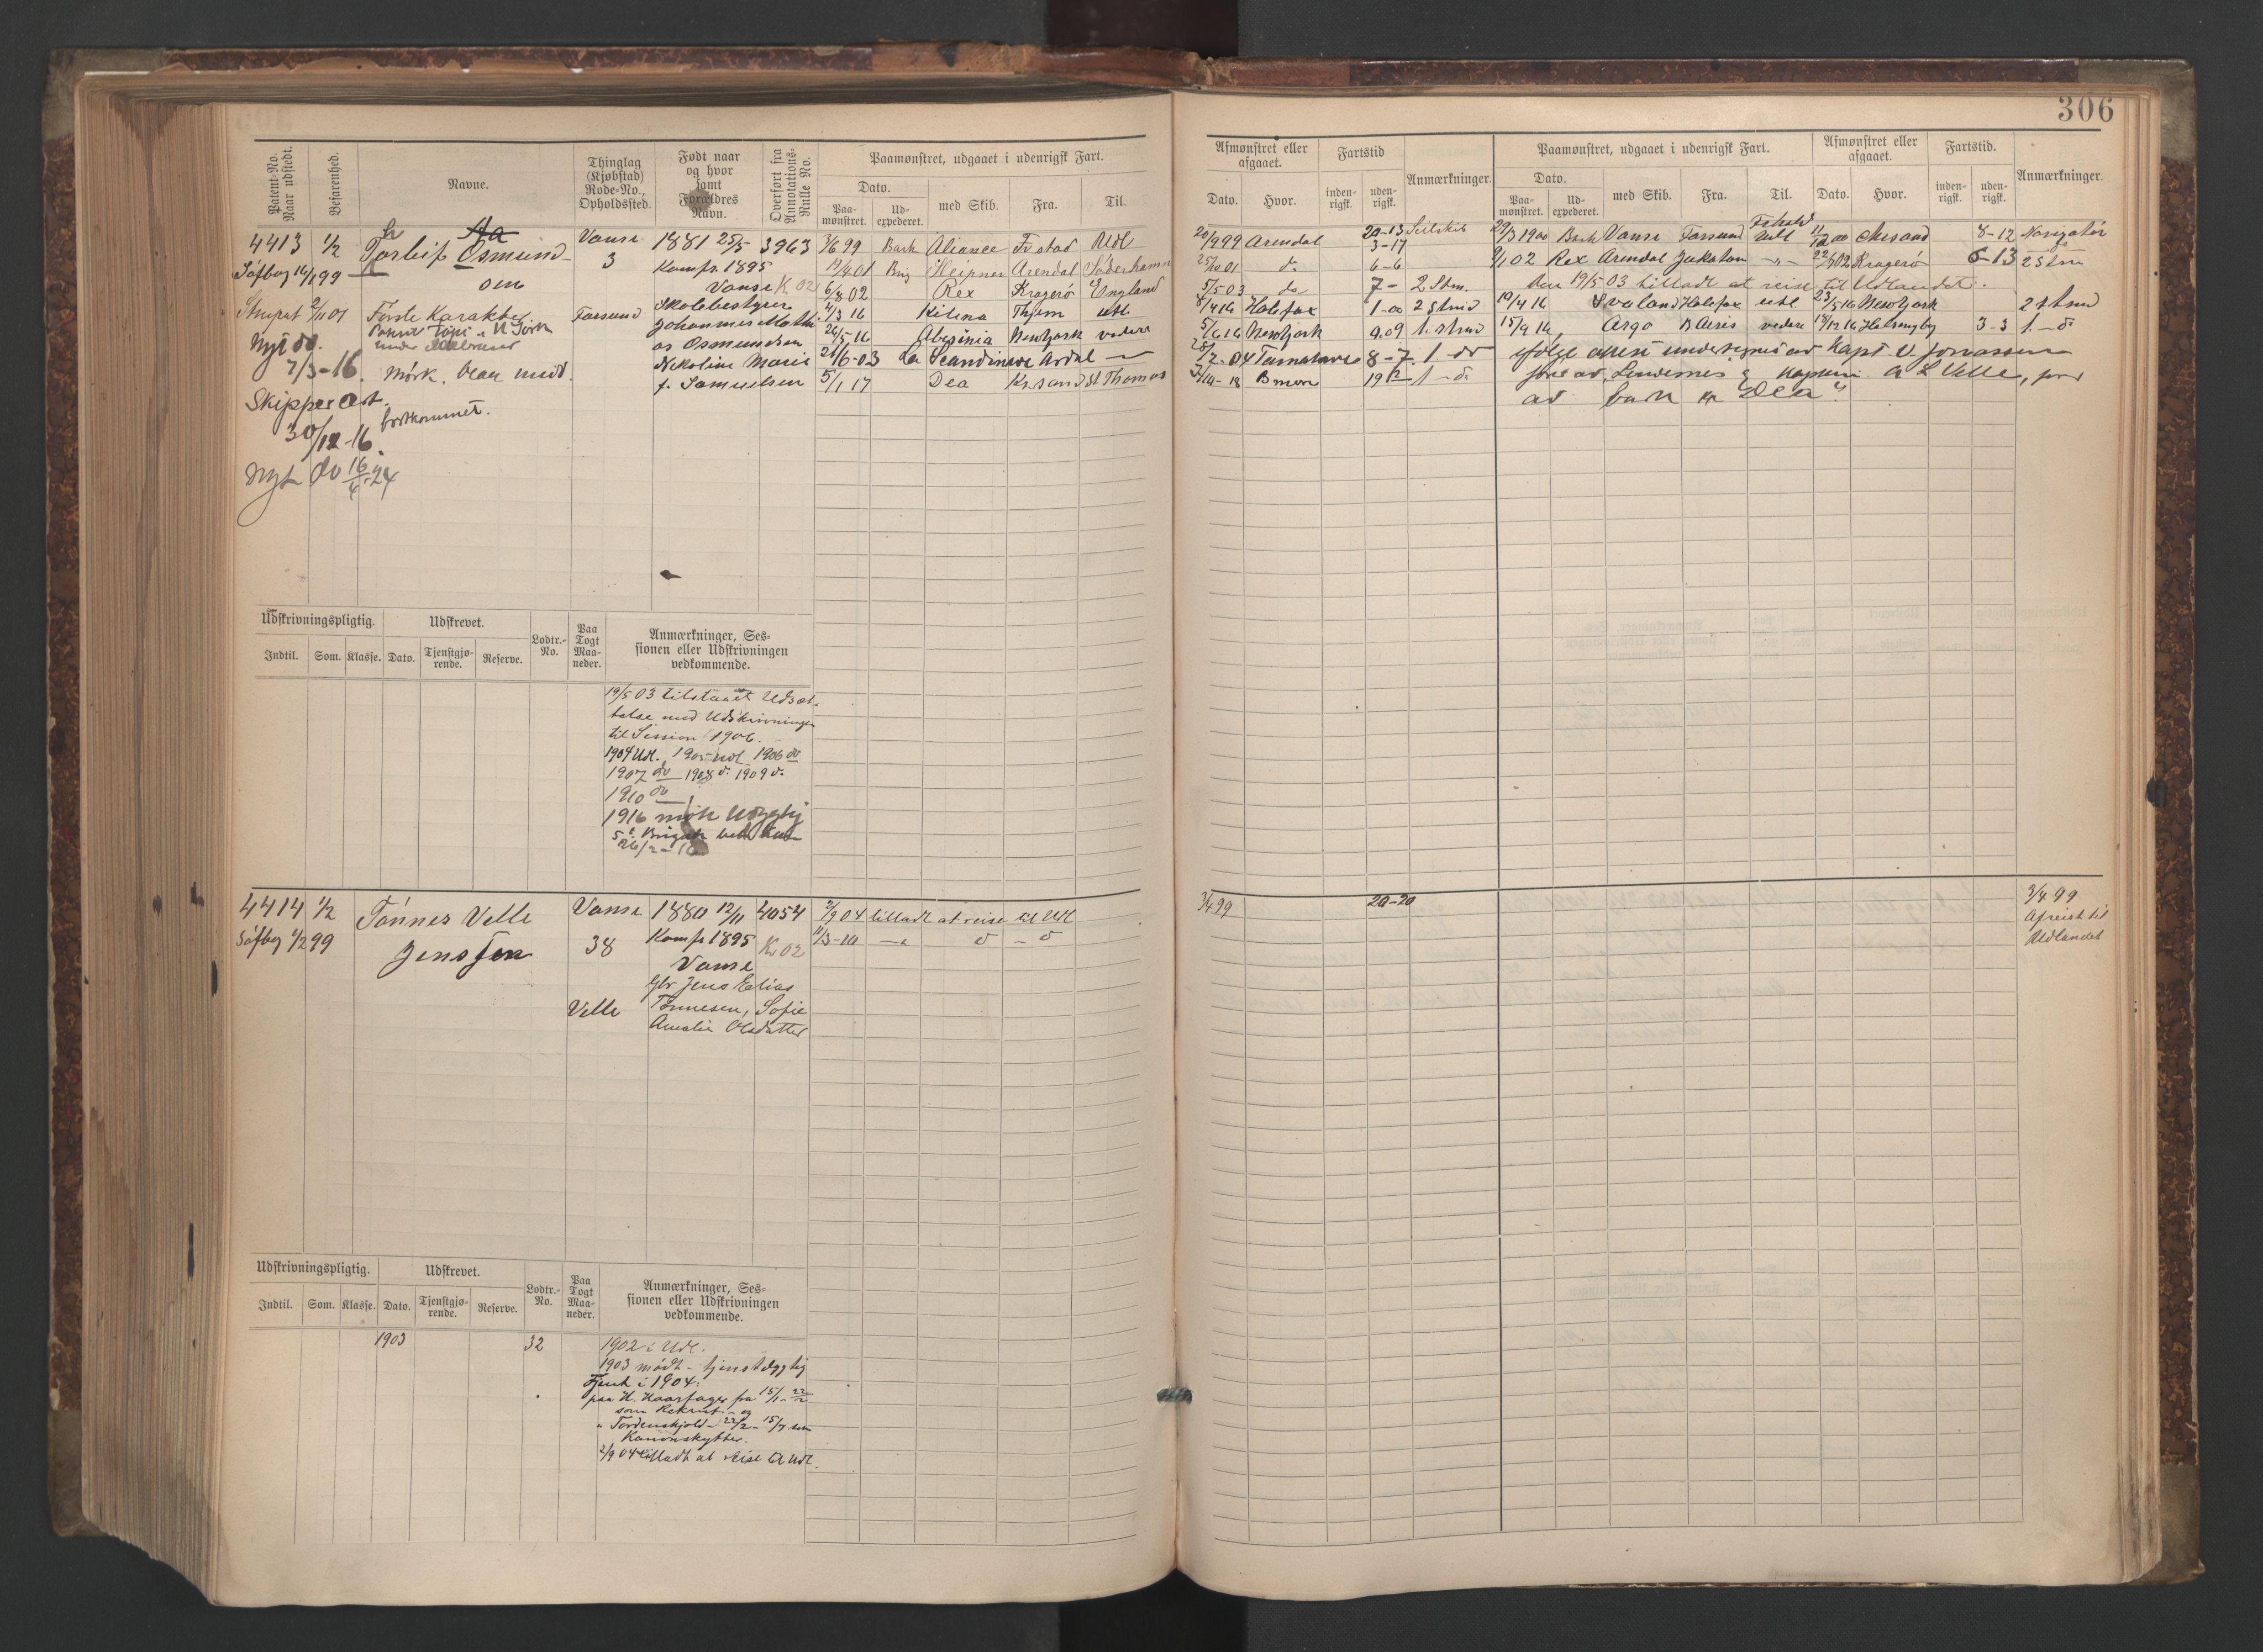 306
Patent-No. Naar udstedt.
Befarenhed.
Navne.
Thinglag (Kjøbstad) Rode-No., Opholdssted.
Født naar og hvor samt Forældres Navn.
Overført fra Annotations-Rulle No.
Paamønstret, udgaaet i udenrigsk Fart.
Dato.
Paamønstret.
Udexpederet.
med Skib.
Fra.
Til.
Afmønstret eller afgaaet.
Dato.
Hvor.
Fartstid
indenrigsk.
udenrigsk.
Anmærkninger.
Paamønstret, udgaaet i udenrigsk Fart.
Dato.
Paamønstret.
Udexpederet.
med Skib.
Fra.
Til.
Afmønstret eller afgaaet.
Dato.
Hvor.
Fartstid.
indenrigsk.
udenrigsk.
Anmærkninger.
4413 1/2 Torleif Osmund-
sen
Vanse
3
Farsund
1881 25/5 3963
Konf. 1895
Vanse K 02
Skolebestyrer
Johannes Mathi-
as Osmundsen
Nikoline Marie
f. Samuelsen
Søfbog 14/1 99
Styrpat 2/11 01 Første Karakter
Nyt do.
7/3-16. Mørk. blaa
Skipper
bortkommet.
30/12-16.
Nyt do 16/4-24
3/6 99 Bark Aliance Fr stad Udl
19/4 01 Brig Heipner Arendal Söderhamn
6/8 02 Rex Kragerø England
4/3 16 Kilina utl
26/5-16 Abesinia Newyork videre
21/6-03 La Scandinave Ardal
5/1 17 Dea Kr.sand St Thomas
20/9 99 Arendal 20-13 Seilskib
3-17
25/10 01 do 6-6
5/5-03 do 7- 2 Stm.
8/4 16 Halefax 1-00 2 strmd
5/6 16 Newyork 9.09 1. strmd
8-7. 1-do
19 12 1-d.
29/3 1900 Bark Vanse Farsund Udl
8-12 Navigatör
9/1 02 Rex Arendal 22/7 02 Kragerø 6-13 2 Stm
Den 19/5-03 tilladt at reise til Udlandet.
19/4 16 Svaland Halefax utl 23/5 16 Newyork 2 strmd
15/9 16 Argo B Aeris videre 18/12 16 Helsingby 3-3 1.-d.
ifølge attest undertegnet av Kapt. V. Jonassen
fører av "Lindernes" & Kaptein A L Velle, fører
av bark "Dea".
Udskrivningspligtig.
Indtil. Som. Klasse.
Udskrevet.
Dato. Tjenstgjørende. Reserve.
Lodtr.-No.
Paa Togt Maaneder.
Anmærkninger, Sessionen eller Udskrivningen vedkommende.
19/5 03 tilstaaet Udsæt-
telse med Udskrivningen
til Session 1906.
1904 Udl. 1905 udl 1906 do
1907 do 1908 d. 1909 d.
1910 do
1916 møtt
26/2-16
4414 1/2 Tønnes Velle
Jenssen
Søfbog 1/2 99
Vanse
38
Velle
1880 12/11 4054
Konf. 1895 K 02
Vanse
Gbr Jens Elias
Tønnesen, Sofie
Amalie Olsdatter
2/9 04 tilladt at reise til Udl
11/3-10
3/4 99
20-20
3/4 99
Afreist til
Udlandet
Udskrivningspligtig.
Indtil. Som. Klasse.
Udskrevet.
Dato. Tjenstgjørende. Reserve.
Lodtr.-No.
Paa Togt Maaneder.
Anmærkninger, Sessionen eller Udskrivningen vedkommende.
1903
32
1902 i Udl.
1903 mødt - tjenstdygtig
Tjent i 1904:
paa H. Haarfager fra 15/1-22/2
som Rekrut - og
" Tordenskjold - 22/2 - 15/7 som
Kanonskytter.
2/9 04 tilladt at reise til Udl.